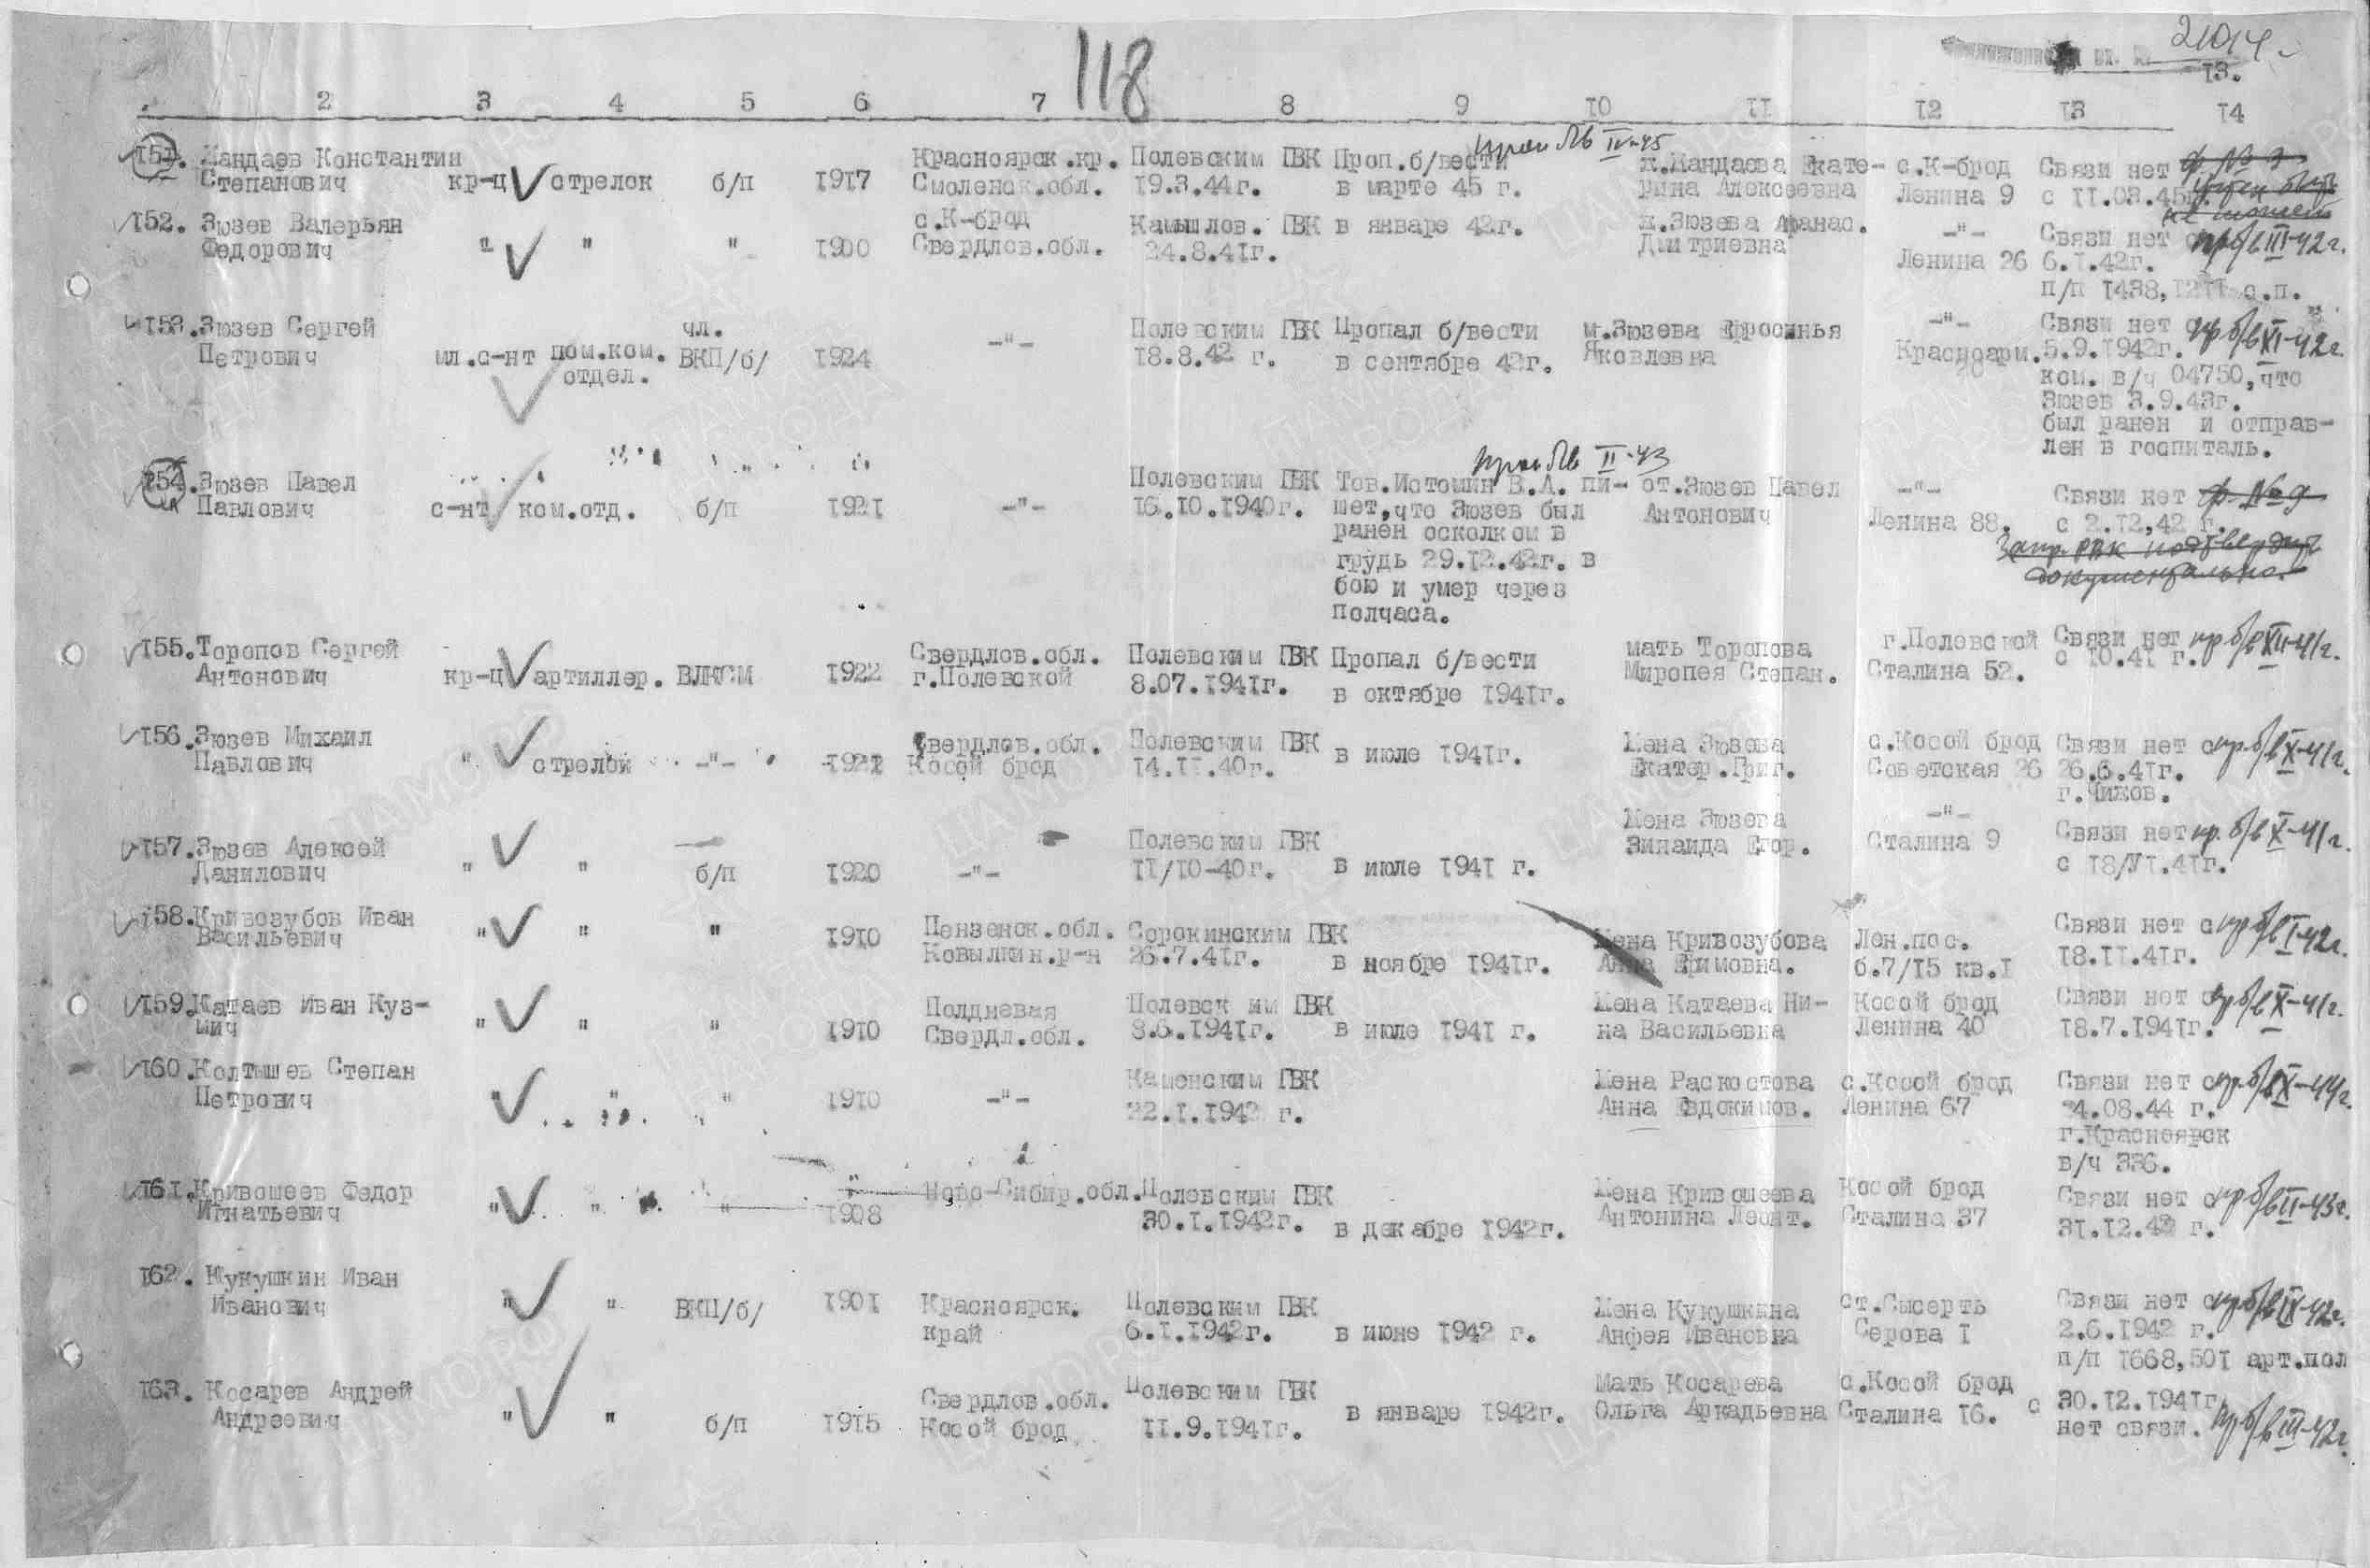 118
21014
13.
2 3 4 5 6 7 8 9 10 11 12 13 14
проп б/в IV-45
151. Жандаев Константин Красноярск.кр. Полевским ГВК Проп.б/вести ж.Жандаева Екате- с.К-брод Связи нет ф №
Степанович кр-ц стрелок б/п 1917 Смоленск.обл. 19.3.44г. в марте 45 г. рина Алексеевна Ленина 9 с 11.03.45г.
не может
152. Зюзев Валерьян с.К-брод Камышлов. ГВК в январе 42г. ж.Зюзева Афанас. -"- Связи нет с пр б/в III-42г.
Федорович " " " 1900 Свердлов.обл. 24.8.41г. Дмитриевна Ленина 26 6.1.42г.
п/п 1438,1211 с.п.
153. Зюзев Сергей чл. -"- Полевским ГВК Пропал б/вести м.Зюзева Ефросинья -"- Связи нет с пр б/в XI-42г.
Петрович мл.с-нт пом.ком. ВКП/б/ 1924 18.8.42 г. в сентябре 42г. Яковлевна Красноарм. 5.9.1942г.
отдел. 20 ком. в/ч 04750,что
Зюзев 3.9.43г.
был ранен и отправ-
лен в госпиталь.
проп б/в II-43
154. Зюзев Павел Полевским ГВК Тов.Истомин В.А. пи- от.Зюзев Павел -"- Связи нет ф. №9
Павлович с-нт ком.отд. б/п 1921 -"- 16.10.1940г. шет,что Зюзев был Антонович Ленина 88. с 2.12,42 г.
ранен осколком в Запр. РВК подтвердить
грудь 29.12.42г. в документально.
бою и умер через
полчаса.
155. Торопов Сергей Свердлов.обл. Полевским ГВК Пропал б/вести мать Торопова г.Полевской Связи нет пр б/в XII-41г.
Антонович кр-ц артиллер. ВЛКСМ 1922 г.Полевской 8.07.1941г. в октябре 1941г. Миропея Степан. Сталина 52. с 10.41 г.
156. Зюзев Михаил Свердлов.обл. Полевским ГВК в июле 1941г. Жена Зюзева с.Косой брод Связи нет с пр.б/в X-41г.
Павлович " стрелок -"- 1921 Косой брод 14.11.40г. Екатер.Григ. Советская 26 26.6.41г.
г.Чижов.
157. Зюзев Алексей Полевским ГВК Жена Зюзева -"- Связи нет пр. б/в X-41г.
Данилович " " б/п 1920 -"- 11/10-40г. в июле 1941 г. Зинаида Егор. Сталина 9 с 18/VI.41г.
158. Кривозубов Иван Пензенск.обл. Сорокинским ГВК Жена Кривозубова Лен.пос. Связи нет с пр б/в I-42г.
Васильевич " " " 1910 Ковылкин.р-н 26.7.41г. в ноябре 1941г. Анна Ефимовна. б.7/15 кв.1 18.11.41г.
159. Катаев Иван Куз- Полдневая Полевск им ГВК Жена Катаева Ни- Косой брод Связи нет с пр б/в X-41г.
мич " " " 1910 Свердл.обл. 3.6.1941г. в июле 1941 г. на Васильевна Ленина 40 18.7.1941г.
160. Колтышев Степан Каменским ГВК Жена Раскостова с.Косой брод Связи нет с пр.б/в X-44г.
Петрович " " " 1910 -"- 22.1.1942 г. Анна Евдокимов. Ленина 67 24.08.44 г.
г.Красноярск
в/ч 336.
161. Кривошеев Федор " Ново-Сибир.обл. Полевским ГВК Жена Кривошеева Косой брод Связи нет с пр б/в II-43г.
Игнатьевич " " " 1908 30.1.1942г. в декабре 1942г. Антонина Леонт. Сталина 37 31.12.42 г.
162. Кукушкин Иван Красноярск. Полевским ГВК Жена Кукушкина ст.Сысерть Связи нет с пр.б/в IX-42г.
Иванович " " ВКП/б/ 1901 край 6.1.1942г. в июне 1942 г. Анфея Ивановна Серова 1 2.6.1942 г.
п/п 1668,501 арт.пол
163. Косарев Андрей Свердлов.обл. Полевским ГВК Мать Косарева с.Косой брод с 30.12.1941г.
Андреевич " " б/п 1915 Косой брод 11.9.1941г. в январе 1942г. Ольга Аркадьевна Сталина 16. нет связи. пр б/в III-42г.